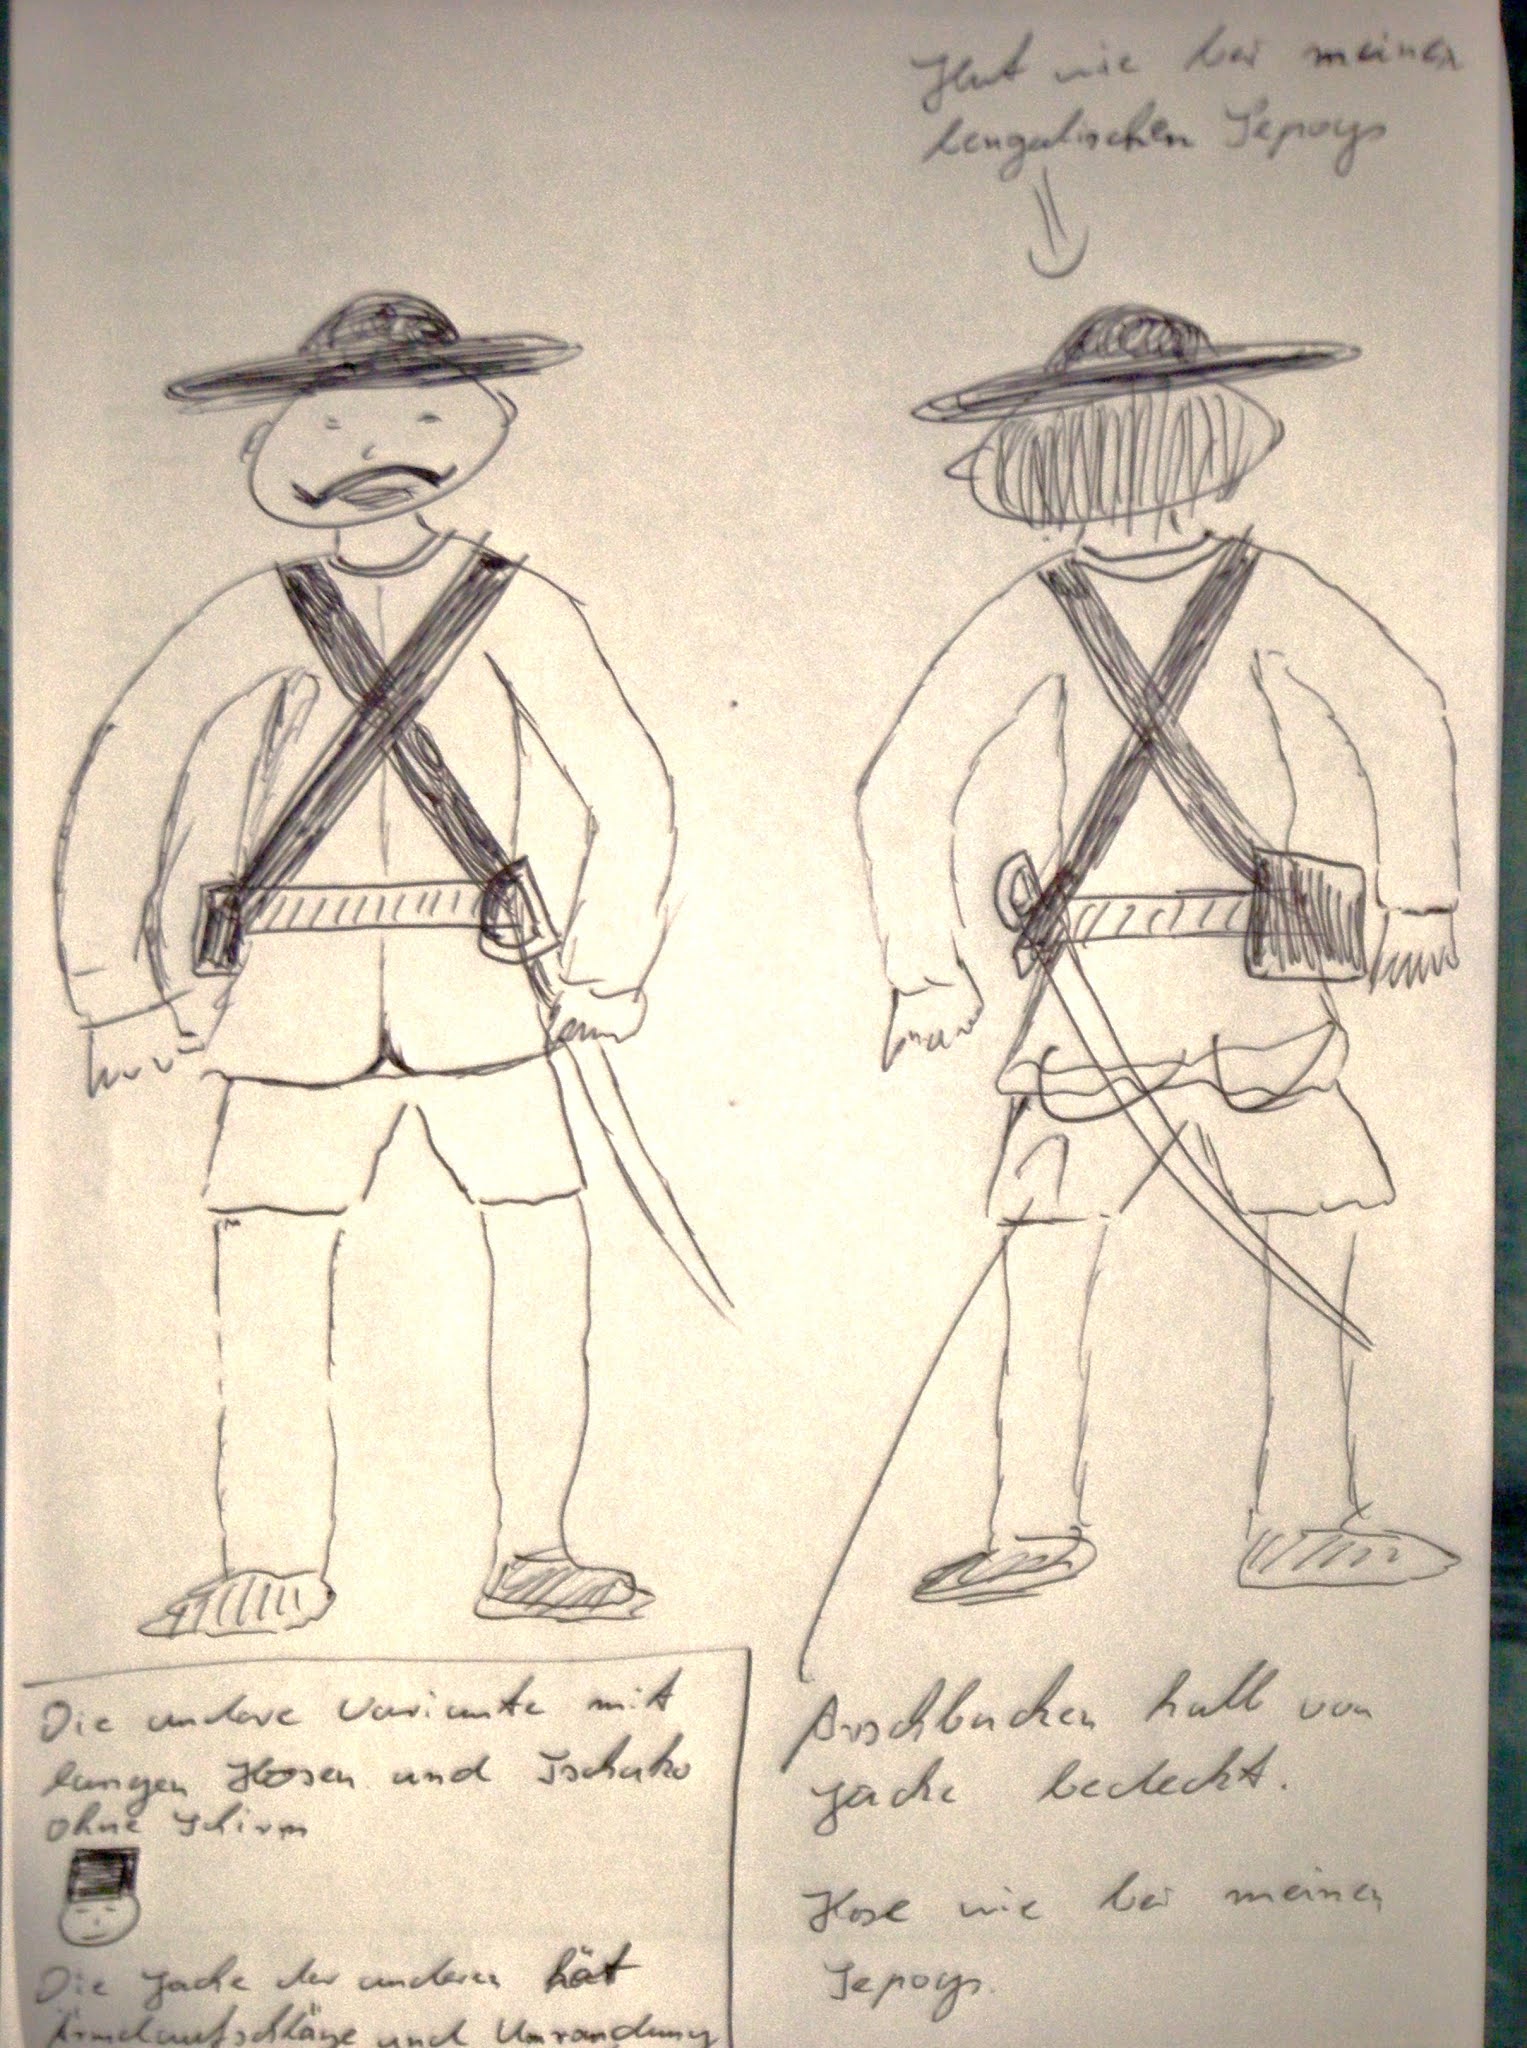 Hut wie bei meinen
bengalischen Sepoys
Die andere Variante mit
langen Hosen und Tschako
ohne Schirm
Die Jacke der anderen hat
Ärmelaufschläge und Umrandung
Arschbacken halb von
Jacke bedeckt.
Hose wie bei meinen
Sepoys.